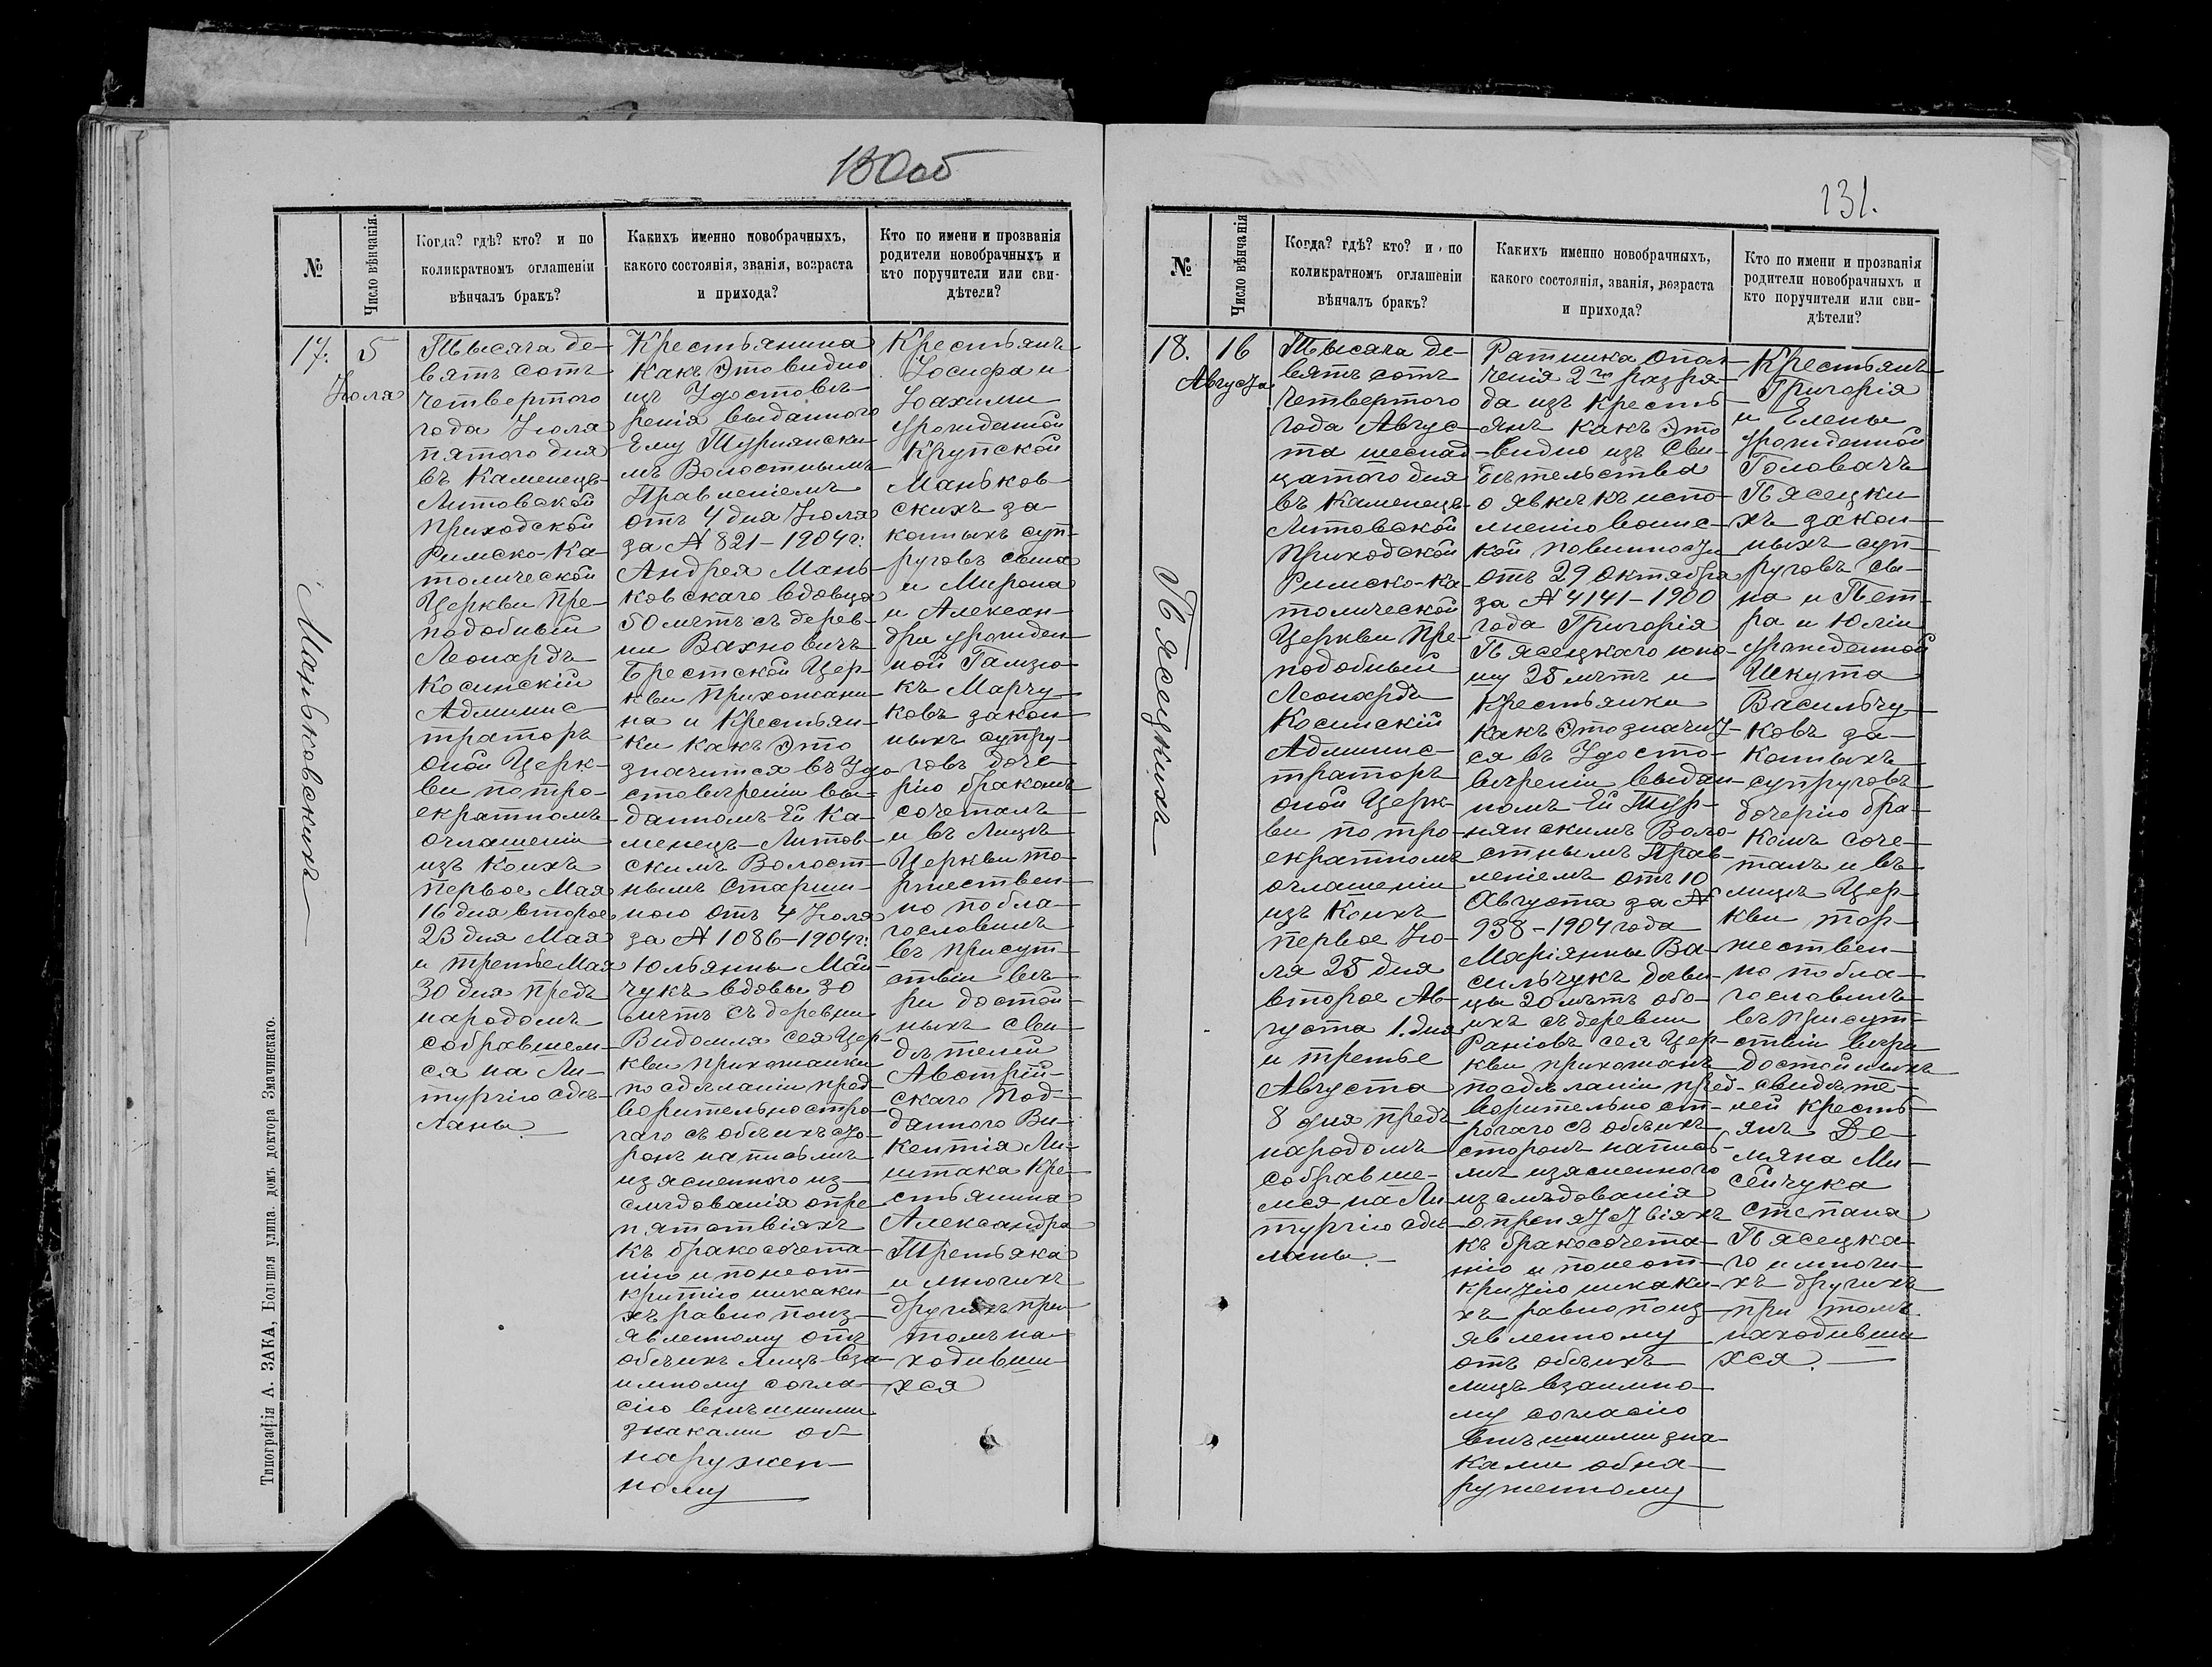 130об
№
Число вѣнчанія.
Когда? гдѣ? кто? и по
коликратномъ оглашеніи
вѣнчалъ бракъ?
Какихъ именно новобрачныхъ,
какого состоянія, званія, возраста
и прихода?
Кто по имени и прозванія
родители новобрачныхъ и
кто поручители или сви-
дѣтели?
17.
5
Іюля
Маньковскихъ
Тысяча де-
вятъ сотъ
четвертого
года Іюля
пятого дня
въ Каменецъ
Литовской
приходской
Римско-Ка-
толической
Церкви Пре-
подобный
Леонардъ
Косинскій
Админис-
траторъ
оной Церк-
ви по тро-
екратномъ
оглашеніи
изъ коихъ
первое Мая
16 дня второе
23 дня Мая
и третье Мая
30 дня предъ
народомъ
собравшем-
ся на Ли-
тургію сдѣ-
ланы.
Крестьянина
какъ это видно
изъ Удостовѣ-
ренія выданного
Ему Турнянски
мъ Волостнымъ
Правленіемъ
отъ 4 дня Іюля
за № 821-1904г:
Андрея Мань-
ковскаго вдовца
50 лѣтъ съ дерев-
ни Вахновичъ
Брестской Цер-
кви Прихожани
на и Крестьян-
ки какъ это
значится въ Удо-
стовѣреніи вы-
данномъ Ей Ка-
менецъ-Литов-
скимъ Волост-
нымъ Старши-
ною отъ 4 Іюля
за № 1086-1904г:
Юльянны Май-
чукъ вдовы 30
лѣтъ съ деревни
Видомля сея Цер-
кви прихожанки
по сдѣланіи пред-
ворительно стро-
гаго съ обѣихъ сто-
ронъ на письмѣ
изяснечного из-
слѣдованія о пре-
пятствіяхъ
къ бракосочета-
нію и по неот-
крытію никаки-
хъ равно по из-
явленному отъ
обѣихъ лицъ вза-
имному согла-
сію внѣшними
знаками об-
наружен-
ному
Крестьянъ
Іосифа и
Іоахимы
урожденной
Крупской
Маньков-
скихъ за-
конныхъ суп-
руговъ сына
и Мирона
и Алексан-
дры урожден-
ной Гализю-
къ Марчу-
ковъ закон-
ныхъ супру-
говъ доче-
рію бракомъ
сочеталъ
и въ Лицѣ
Церкви то-
ржествен-
но побла-
гословилъ
въ присут-
ствіи вѣ-
ры достой-
ныхъ сви-
дѣтелей
Австрій-
скаго под-
данного Ви-
кентія Ли-
штака Кре-
стьянина
Александра
Третьяка
и многихъ
другихъ при
томъ на-
ходивши-
хся
Типографія А. ЗАКА, Большая улица. домъ доктора Змачинскаго.
131.
№
Число вѣнчанія
Когда? гдѣ? кто? и по
коликратномъ оглашеніи
вѣнчалъ бракъ?
Какихъ именно новобрачныхъ,
какого состоянія, званія, возраста
и прихода?
Кто по имени и прозванія
родители новобрачныхъ и
кто поручители или сви-
дѣтели?
18.
16
Августа
Пясецкихъ
Тысяча де-
вятъ сотъ
четвертого
года Авгус-
та шеснад-
цатого дня
въ Каменецъ-
Литовской
приходской
Римско-Ка-
толической
Церкви Пре-
подобный
Леонардъ
Косинскій
Админис-
траторъ
оной Церк-
ви по тро-
екратномъ
оглашеніи
изъ коихъ
первое Ію-
ля 25 дня
второе Ав-
густа 1. дня
и третье
Августа
8 дня предъ
народомъ
собравше-
мся на Ли-
тургію сдѣ-
ланы.
Ратника опол-
ченія 2го разря-
да изъ кресть-
янъ какъ это
видно изъ Сви-
дѣтельства
о явкѣ къ испо-
лненію воинс-
кой повинности
отъ 29 Октября
за № 4141-1900
года Григорія
Пясецкаго юно-
шу 25 лѣтъ и
Крестьянки
какъ это значит-
ся въ Удосто-
вѣреніи выдан-
номъ Ей Тур-
нянскимъ Воло-
стнымъ Прав-
леніемъ отъ 10
Августа за №
938-1904 года
Маріянны Ва-
сильчукъ дѣви-
цы 20 лѣтъ обо-
ихъ съ деревни
Раковъ сея Цер-
кви прихожанъ
по сдѣланіи пред-
ворительно ст-
рогаго съ обѣихъ
сторонъ на пись-
мѣ изясненного
изслѣдованія
о препятствіяхъ
къ бракосочета-
нію и по неот-
крытію никаки-
хъ равно по из-
явленному
отъ обѣихъ
лицъ взаимно-
му согласію
внѣшними зна-
ками обна-
руженному
Крестьянъ
Григорія
и Елены
урожденной
Головачъ
Пясецки
хъ закон-
ныхъ суп-
руговъ сы-
на и Пет-
ра и Юліи
урожденной
Шкута
Васильчу-
ковъ за-
конныхъ
супруговъ
дочерію бра-
комъ соче-
талъ и въ
лицѣ Цер-
кви тор-
жествен-
но побла-
гословилъ
въ присут-
ствіи вѣры
достойныхъ
свидѣте-
лей кресть-
янъ Де-
мяна Ми-
сейчука
Степана
Пясецка-
го и многи-
хъ другихъ
при томъ
находивши
хся.